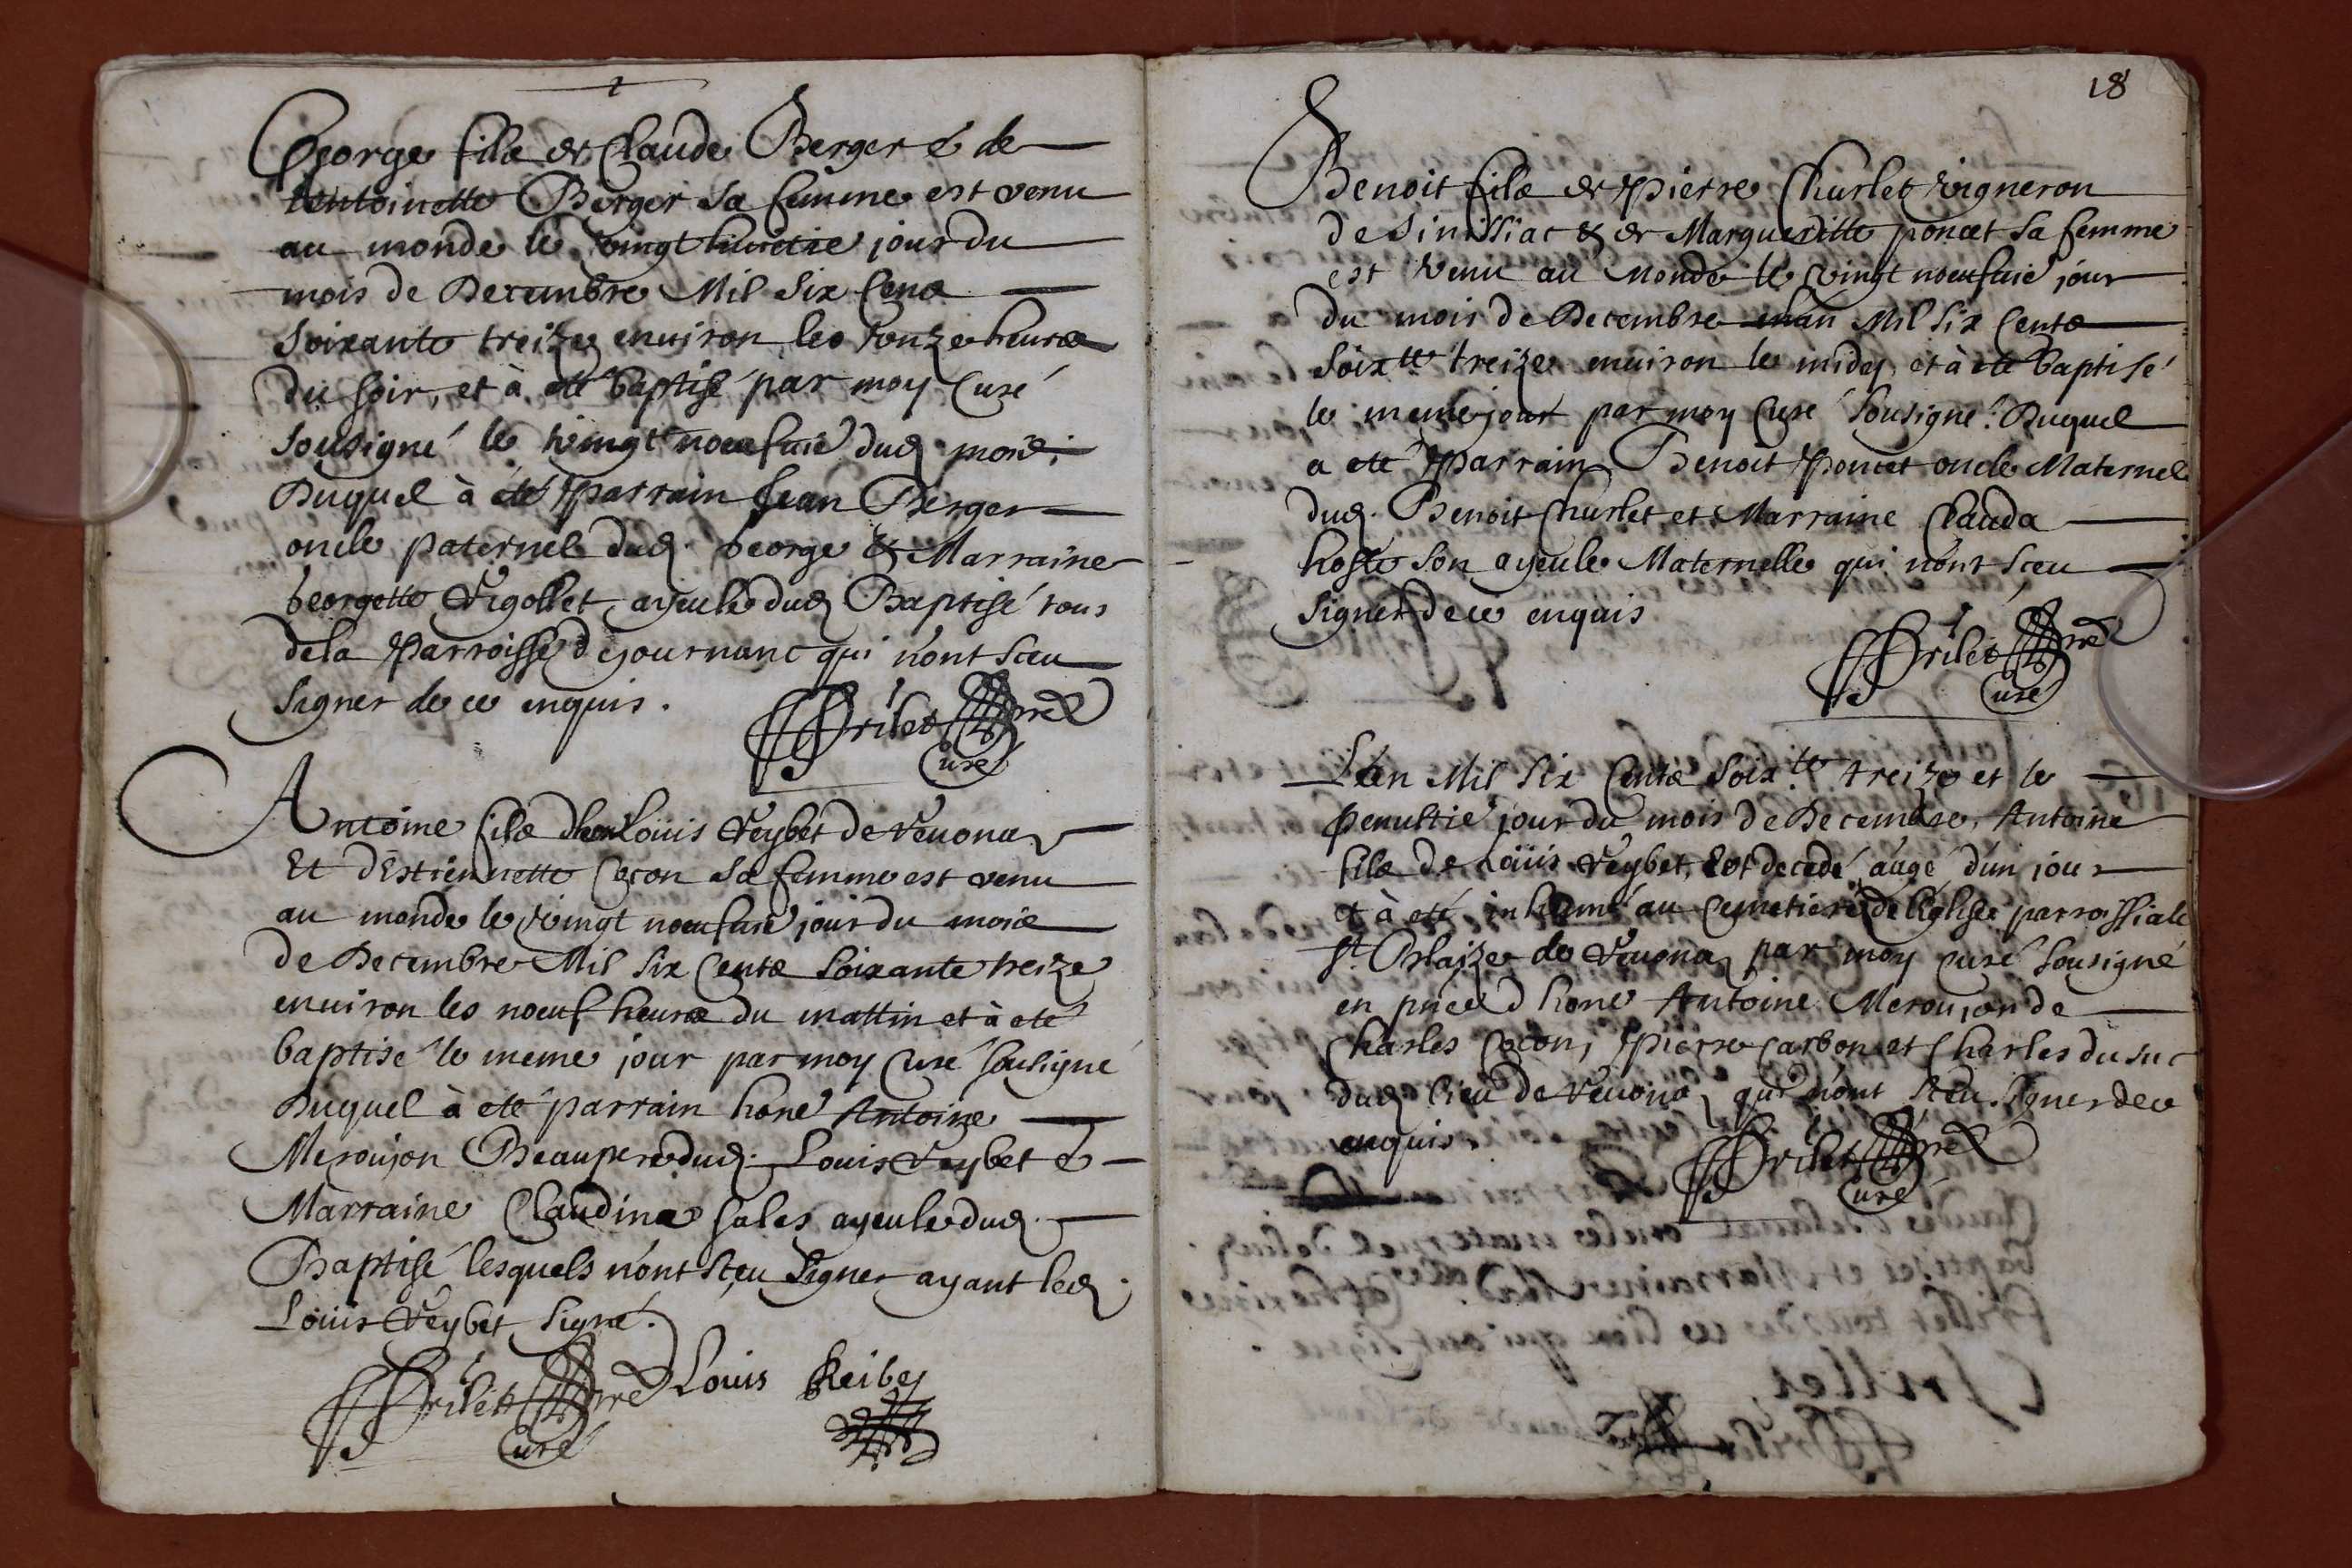 George fils de Claude Berger & de
Antoinette Berger sa femme est venu
au monde le vingt huictie jour du
mois de Decembre Mil Six Cens
Soixante treize enuiron les onze heures
du soir, et à eté baptisé par moy Curé
sousigné le vingt noeufuie dud. mois;
Duquel à eté Parrain Jean Berger
oncle paternel dud. George & Marraine
Georgette Vigollet, ayeule dud. Baptisé tous
de la Parroisse de journanc qui n'ont sceu
signer de ce enquis.
Brilet Pre
Curé
Antoine fils d'hon. Louis Veybet de Veuona
Et d'Estiennette Cocon sa femme est venu
au monde le vingt noeufuie jour du mois
de Decembre Mil Six Cents Soixante treize
enuiron les noeuf heures du mattin et à eté
baptisé le meme jour par moy Curé sousigné
Duquel à eté parrain hone Antoine
Meroujon Beaupere dud. Louis Veybet &
Marraine Claudina sales ayeule dud.
Baptisé lesquels n'ont sceu signer ayant led.
Louis Veybet signé.
Brilet Pre Louis
Curé
18
Benoit fils de Pierre Churlet vigneron
de & de Margueritte poncet sa femme
est venu au monde le vingt noeufuie jour
du mois de Decembre Mil Six Cents
Soixte treize enuiron le midy, et à eté baptisé
le meme jour par moy Curé sousigné. Duquel
a eté Parrain Benoit Poncet oncle Maternel
dud. Benoit Churlet et Marraine Clauda
hoste son ayeule Maternelle qui n'ont sceu
signer de ce enquis
Brilet Pre
Curé
L'an Mil Six Cents Soixte treize et le
penultie jour du mois de Decembre, Antoine
fils de Loüis Veybet, Est decedé, augé d'un jour
et à eté inhumé au Cemetiere de l'Eglise parroissiale
St Blaize de Veuona par moy curé sousigné
en pnce d hone Antoine Meroujon de
Charles Cocon, Pierre Carbon et Charles du suc
dud. lieu de Veuona, qui n'ont sceu signer de ce
enquis.
Brilet Pre
Curé